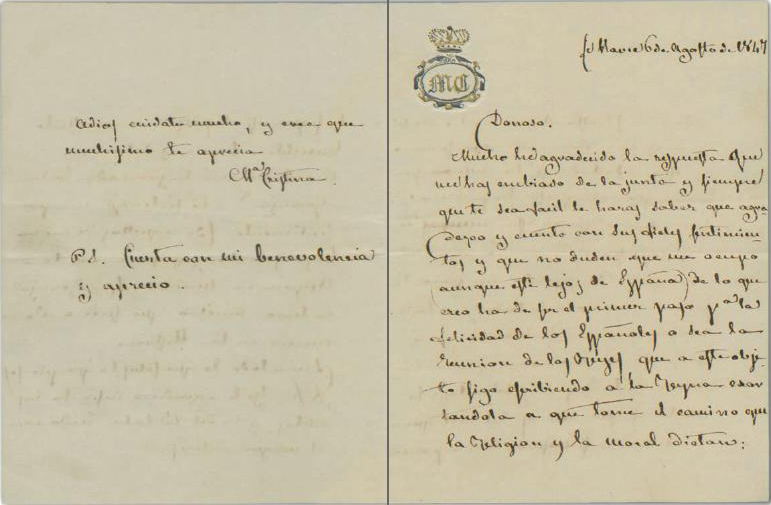 Adios cuidate mucho, y cree que
muchisimo te aprecia
Mª Cristina.
P.S. Cuenta con mi benevolencia
y aprecio.
MC
Havre 6 de Agosto de 1847
Donoso.
Mucho he agradecido la respuesta que
me has embiado de la junta y siempre
que te sea facil le haras saber que agra
dezco y cuento con sus fieles sentimien
tos y que no duden que me ocupo
(aunque esté lejos de España) de lo que
creo ha de ser el primer paso pª la
felicidad de los Españoles o sea la
reunion de los Reyes que a este obje
to sigo escribiendo a la Reyna exor
tandola a que tome el camino que
la Religion y la moral dictan: